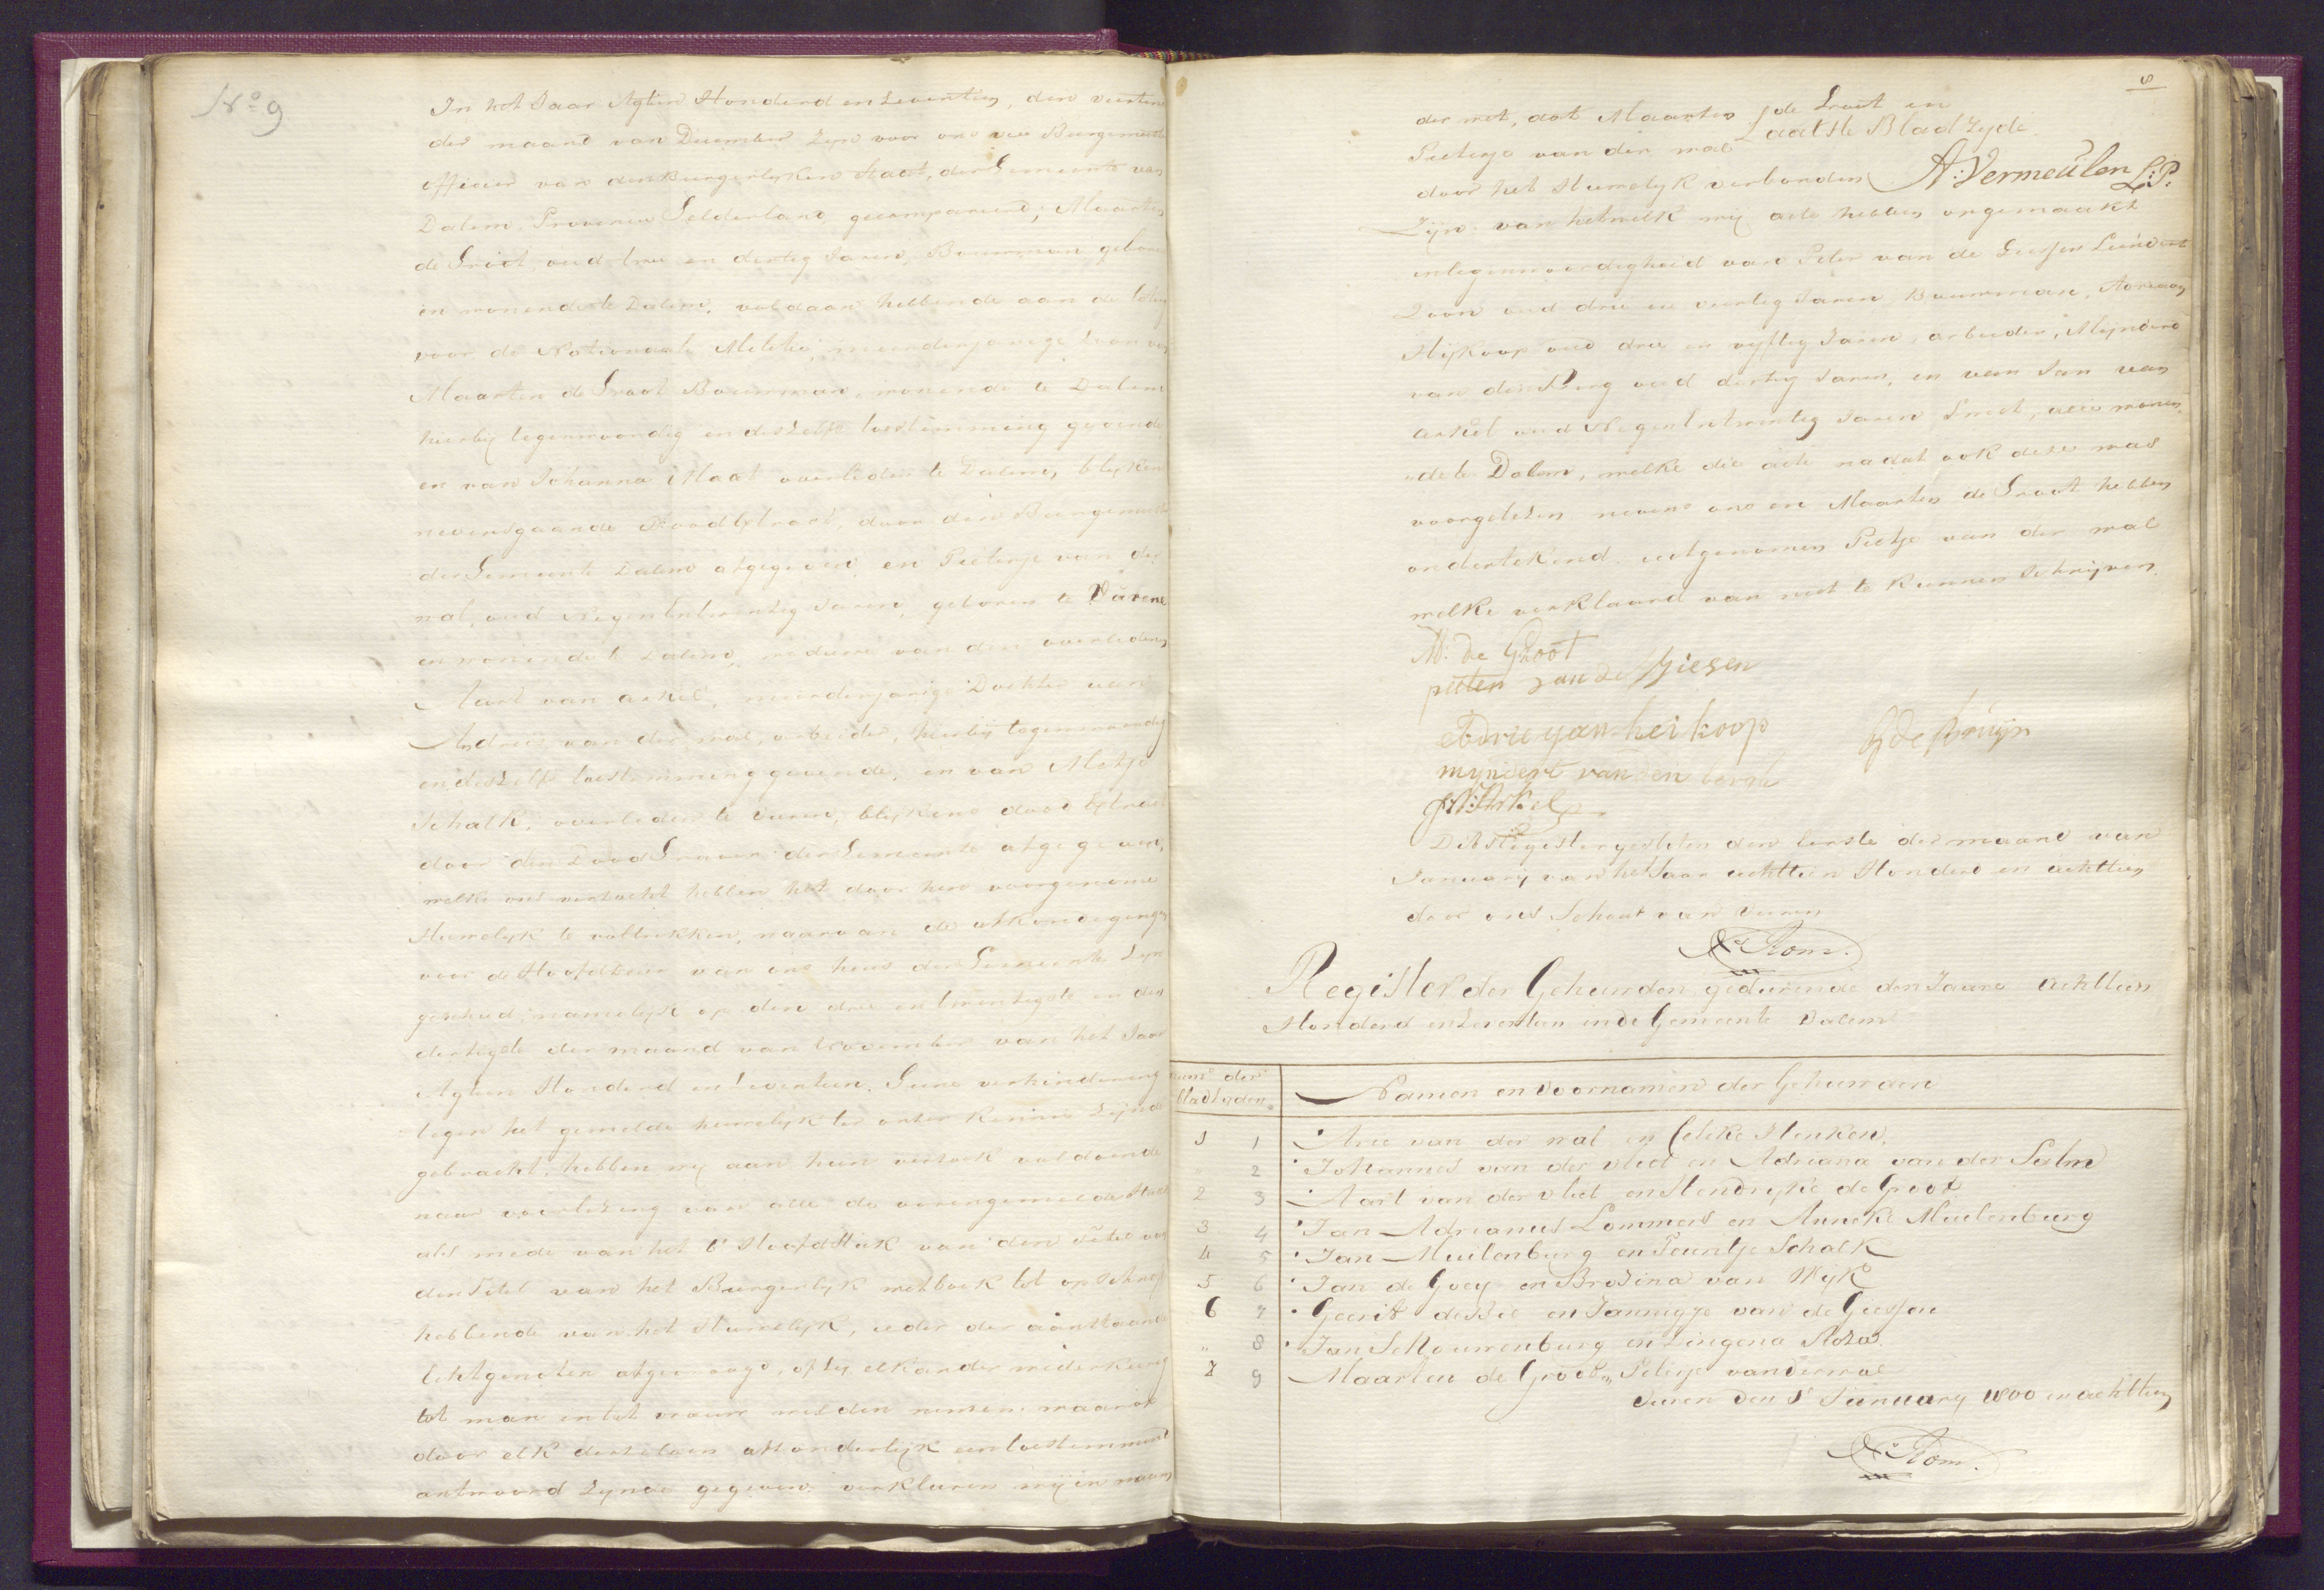 No 9
In het Jaar Agtien Honderd en Seventien, den veertien
der maand van December Zyn voor ons Burgemeester
officier van den Burgerlyken Staat, der Gemeente van
Dalem, Provincie Gelderland gecompareerd; Maarten
de Groot, oud drie en dertig Jaren, Bouwman, geboren
en wonende te Dalem, voldaan hebbende aan de loting
voor de Nationaale Militie, meerderjarige Zoon van
Maarten de Groot Bouwman, wonende te Dalem
hierbij tegenwoordig en deszelfs toestemming gevende
en van Johanna Haat overleden te Dalem, blyken
nevensgaande Doodextract, door den Burgemeester
der Gemeente Dalem afgegeven, en Pietertje van der
wal, oud Negen Entwintig Jaren, geboren te Vurene
en wonende te Dalem, weduwe van den overledenen
Aart van arkel, meerderjarige Dochter van
Andries van der wal, arbeider, hierbij tegenwoordig
en deszelfs toestemming gevende, en van Metje
Schalk, overleden te Vuren, blykens dood Extract
door den Dood Graver der Gemeente afgegeven,
welke ons verzocht hebben het door hun voorgenome
Huwelyk te voltrekken, waarvan de afkondigingen
voor de Hoofddeur van ons huis der Gemeente Zyn
geschied, namelyk op den drie en twintigste en den
dertigste der maand van November van het Jaar
Agtien Honderd en Seventien. Geene verhindering
tegen het gemelde huwelyk ter onzer kennisse Zynde
gebracht, hebben wy aan hun verzoek voldoende
naar voorlezing van alle de vorengemelde Stukken
als mede van het 6e Hoofdstuk van den Titel van
den Titel van het Burgerlyk wetboek tot opschrift
hebbende van het Huwelyk, ieder der aanstaande
Echtgenoten afgevraagd, of zy elkander wederkeerig
tot man en tot vrouw wilden nemen: waarop
door elk derzelven afzonderlyk een toestemmend
antwoord Zynde gegeven, verklaren wij in naam
8
der wet, dat Maarten de Groot en
Pietertje van der wal
Laatste Bladzyde
door het Huwelyk verbonden
A: Vermeulen L:P:
Zijn: van hetwelk wij acte hebben opgemaakt
in tegenwoordigheid van Peter van de Giessen Leendert
Zoon oud drie en veertig Jaren, Bouwman, Adriaan
Hijkoop oud drie en vyftig Jaren, arbeider, Mijndert
van den Berg oud dertig Jaren, en van Jan van
arkel oud Negen Entwintig Jaren Smit, alle wonen
de te Dalem, welke die acte nadat ook deze was
voorgelezen nevens ons en Maarten de Groot hebben
ondertekend, uitgenomen Pietje van der wal
welke verklaard van niet te kunnen Schrijven.
M: de Groot
pieter van de Giesen
Adrieyan heikoop
G de Bruijn
myndert van den berch
J:V: Arkel
Dit Register gesloten den Eerste der maand van
January van het Jaar achttien Honderd en achttien
door ons Schout van Vuren
Kom.
Register der Gehuwden gedurende den Jaare Achttien
Honderd en Seventien in de Gemeente Dalem
num der bladzyden.
Namen en Voornamen der Gehuwden
1 1 Arie van der wal en Celeke Henken,
2 Johannes van der Vliet en Adriana van der Salm
2 3 Aart van der vliet en Hendryke de Groot
3 4 Jan Adrianus Lommers en Anneke Muilenburg
4 5 Jan Muilenburg en Teuntje Schalk
5 6 Jan de Goey en Brosina van Wyk
6 7 Geerit de Bie en Jannigje van de Giessen
" 8 Jan Schouwenburg en Lingena Roza
7 9 Maarten de Groot en Peterje van der wal
Vuren den 1 January 1800 en achttien
Kom.